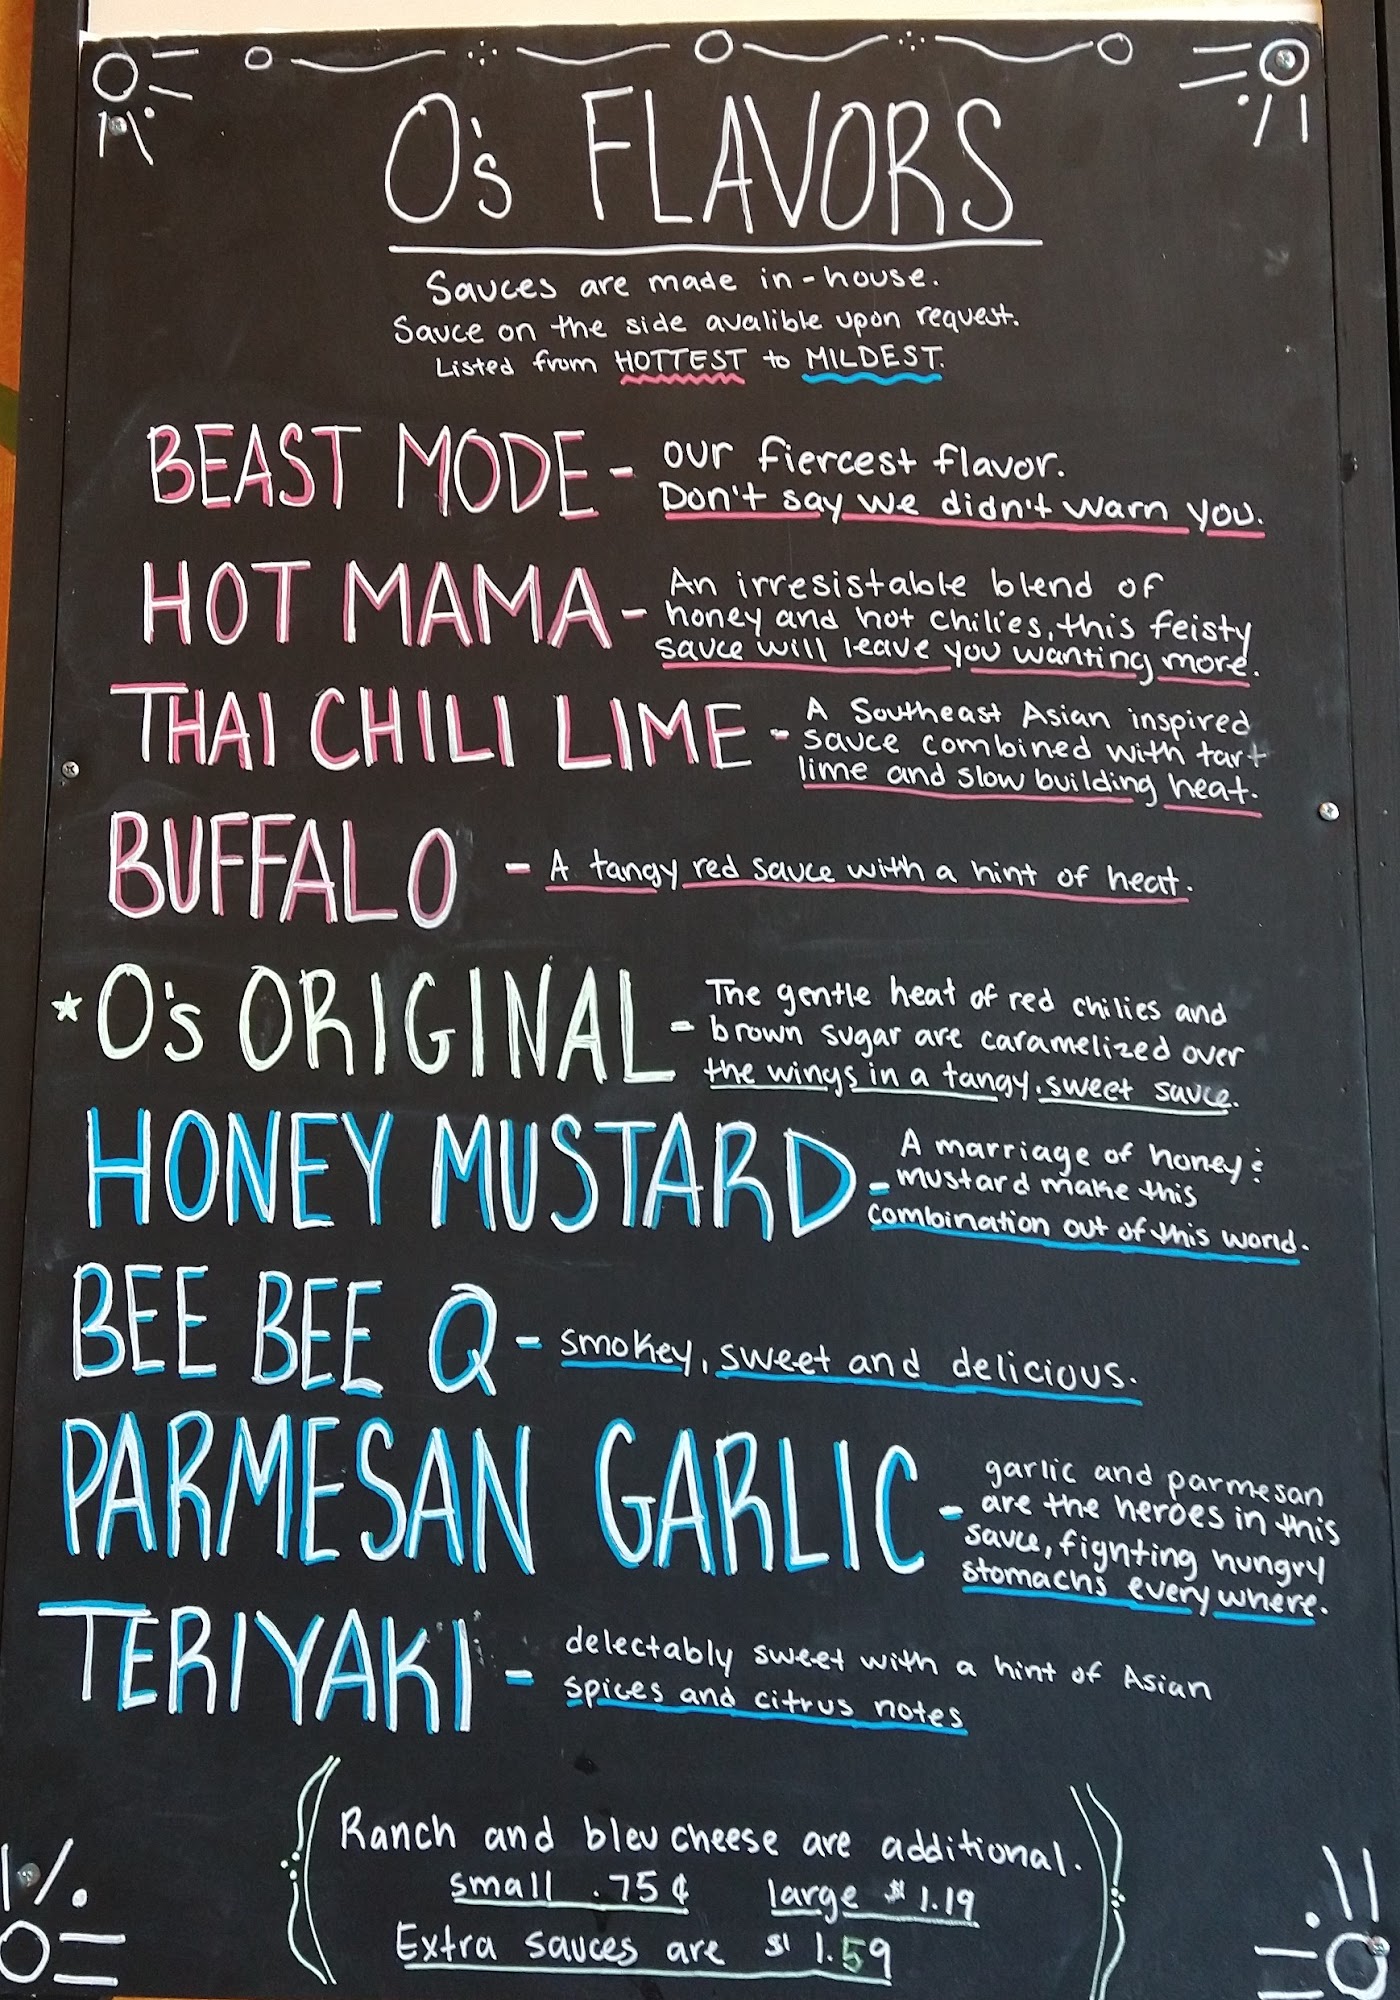 O's FLAVORS
Sauces are made in-house.
Sauce on the side avalible upon request.
Listed from HOTTEST to MILDEST.
BEAST MODE - our fiercest flavor.
Don't say we didn't warn you.
HOT MAMA - An irresistable blend of
honey and hot chilies, this feisty
sauce will leave you wanting more.
THAI CHILI LIME - A Southeast Asian inspired
sauce combined with tart
lime and slow building heat.
BUFFALO - A tangy red sauce with a hint of heat.
*O's ORIGINAL - The gentle heat of red chilies and
brown sugar are caramelized over
the wings in a tangy, sweet sauce.
HONEY MUSTARD - A marriage of honey &
mustard make this
combination out of this world.
BEE BEE Q - smokey, sweet and delicious.
PARMESAN GARLIC - garlic and parmesan
are the heroes in this
sauce, fighting hungry
stomachs everywhere.
TERIYAKI - delectably sweet with a hint of Asian
spices and citrus notes
Ranch and bleu cheese are additional.
small .75¢ large $1.19
Extra sauces are $1.59